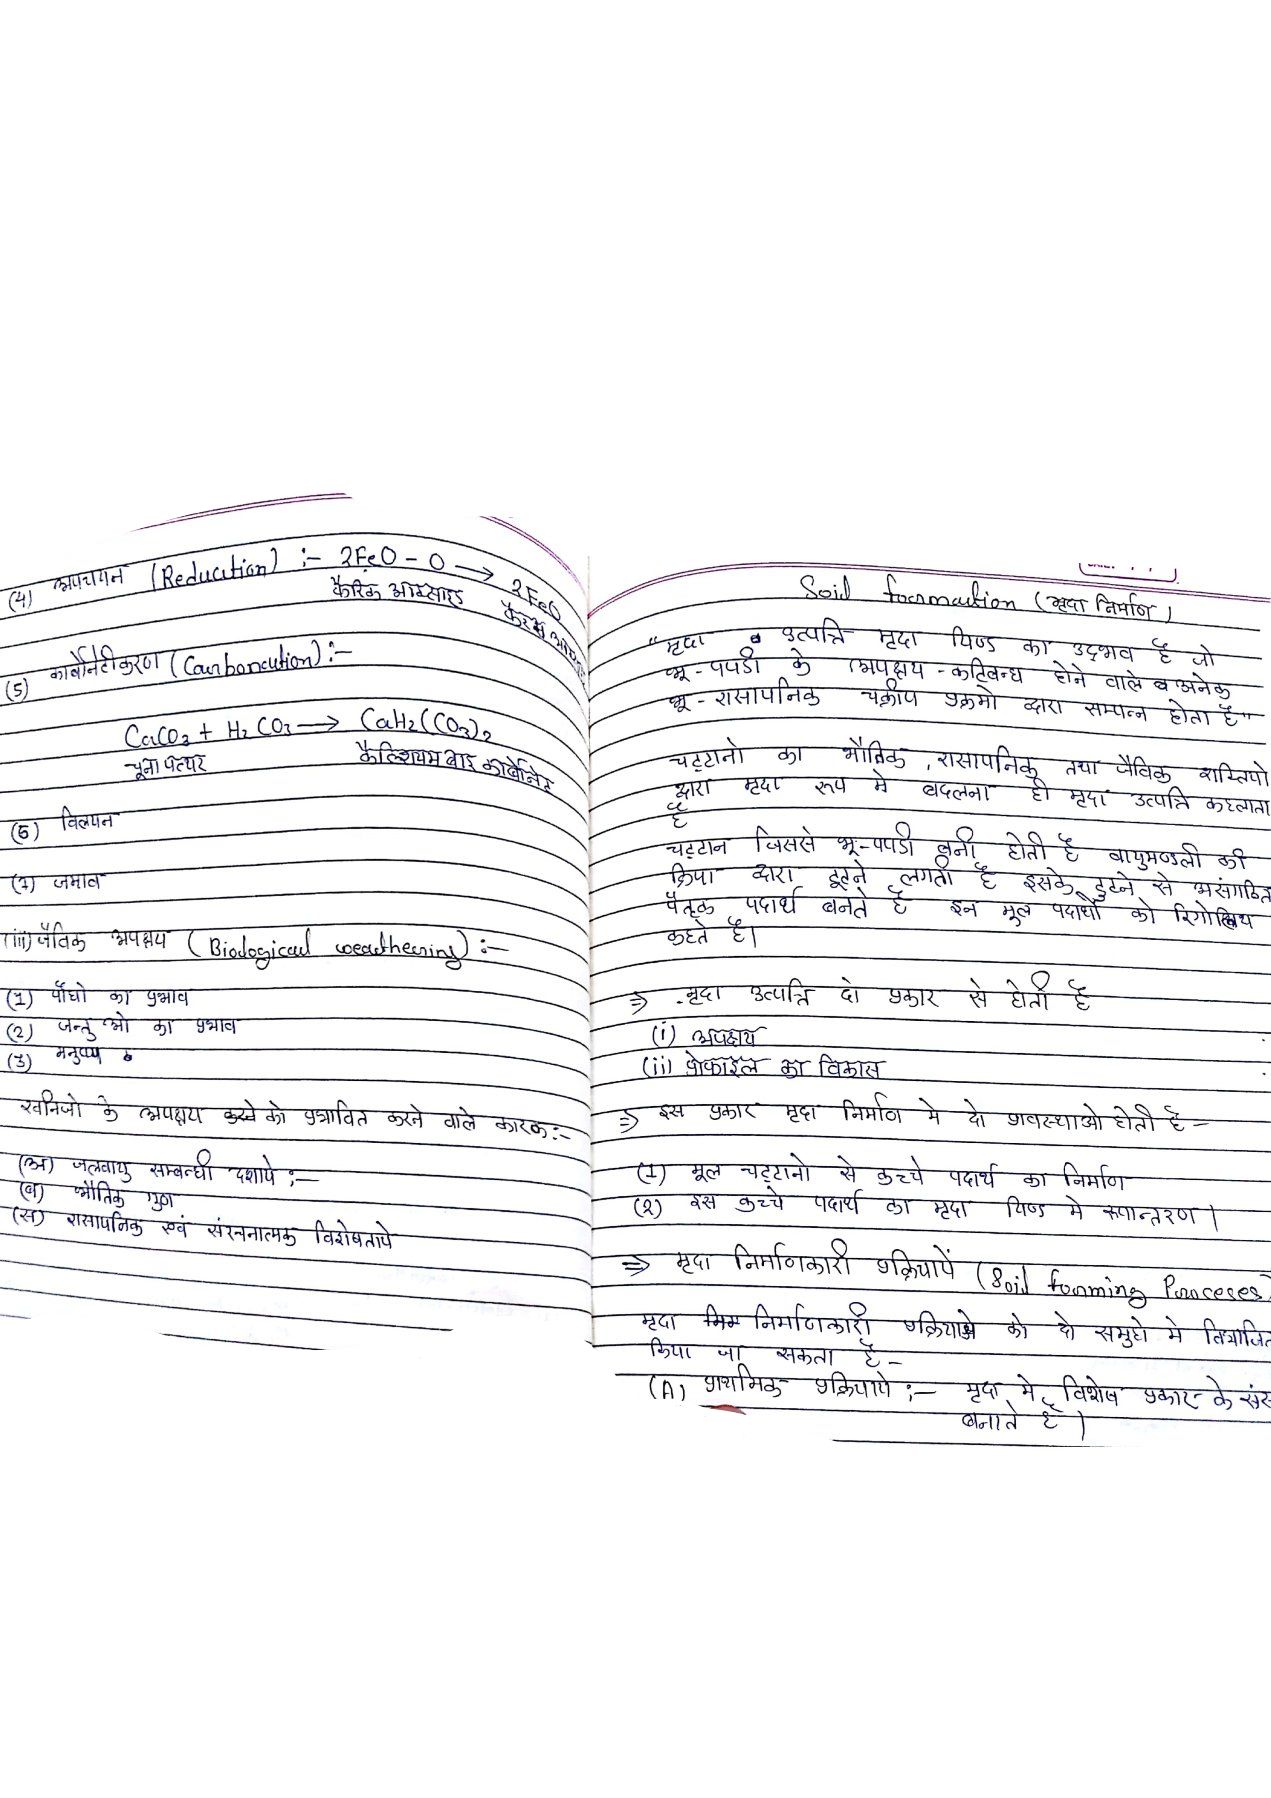 (4) अपचयन (Reducation) :- 2FeO - O → 2FeO
फैरिक आक्साइड फैरस
(5) कार्बोनेटीकरण (Carboncation) :-
CaCO3 + H2CO3 → CaH2(CO3)2
चूना पत्थर कैल्शियम बाइ कार्बोनेट
(6) विलयन
(7) जमाव
(iii) जैविक अपक्षय (Biological weathering) :-
(1) पौधो का प्रभाव
(2) जन्तु ओ का प्रभाव
(3) मनुष्य
खनिजो के अपक्षय करने को प्रभावित करने वाले कारक :-
(अ) जलवायु सम्बन्धी दशाये :-
(ब) भौतिक गुण
(स) रासायनिक एवं संरचनात्मक विशेषताये
Soil formation (मृदा निर्माण)
"मृदा उत्पत्ति मृदा पिण्ड का उद्भव है जो
भू-पपडी के अपक्षय-कटिबन्ध होने वाले व अनेक
भू-रासायनिक चक्रीय प्रक्रमो द्वारा सम्पन्न होता है"
चट्टानो का भौतिक, रासायनिक तथा जैविक शक्तियो
द्वारा मृदा रूप मे बदलना ही मृदा उत्पत्ति कहलाता
है
चट्टान जिससे भू-पपडी बनी होती है वायुमण्डली की
क्रिया द्वारा टूटने लगती है इसके टुटने से असंगठित
पैतृक पदार्थ बनते है इन मूल पदार्थो को रिगोलिथ
कहते है।
⇒ मृदा उत्पत्ति दो प्रकार से होती है
(i) अपक्षय
(ii) प्रोफाइल का विकास
⇒ इस प्रकार मृदा निर्माण मे दो अवस्थाओ होती है -
(1) मूल चट्टानो से कच्चे पदार्थ का निर्माण
(2) इस कच्चे पदार्थ का मृदा पिण्ड मे रूपान्तरण।
⇒ मृदा निर्माणकारी प्रक्रियायें (Soil forming Proceses)
मृदा निर्माणकारी प्रक्रियाओ को दो समुहो मे विभाजित
किया जा सकता है -
(A) प्राथमिक प्रक्रियाये :- मृदा मे विशेष प्रकार के
बनाते है।